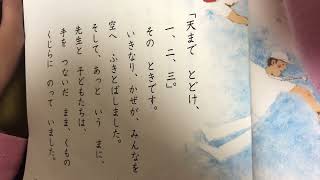 「天まで とどけ、
一、二、三。」
その ときです。
いきなり、かぜが、みんなを
空へ ふきとばしました。
そして、あっと いう まに、
先生と 子どもたちは、
手を つないだ まま、くもの
くじらに のって いました。